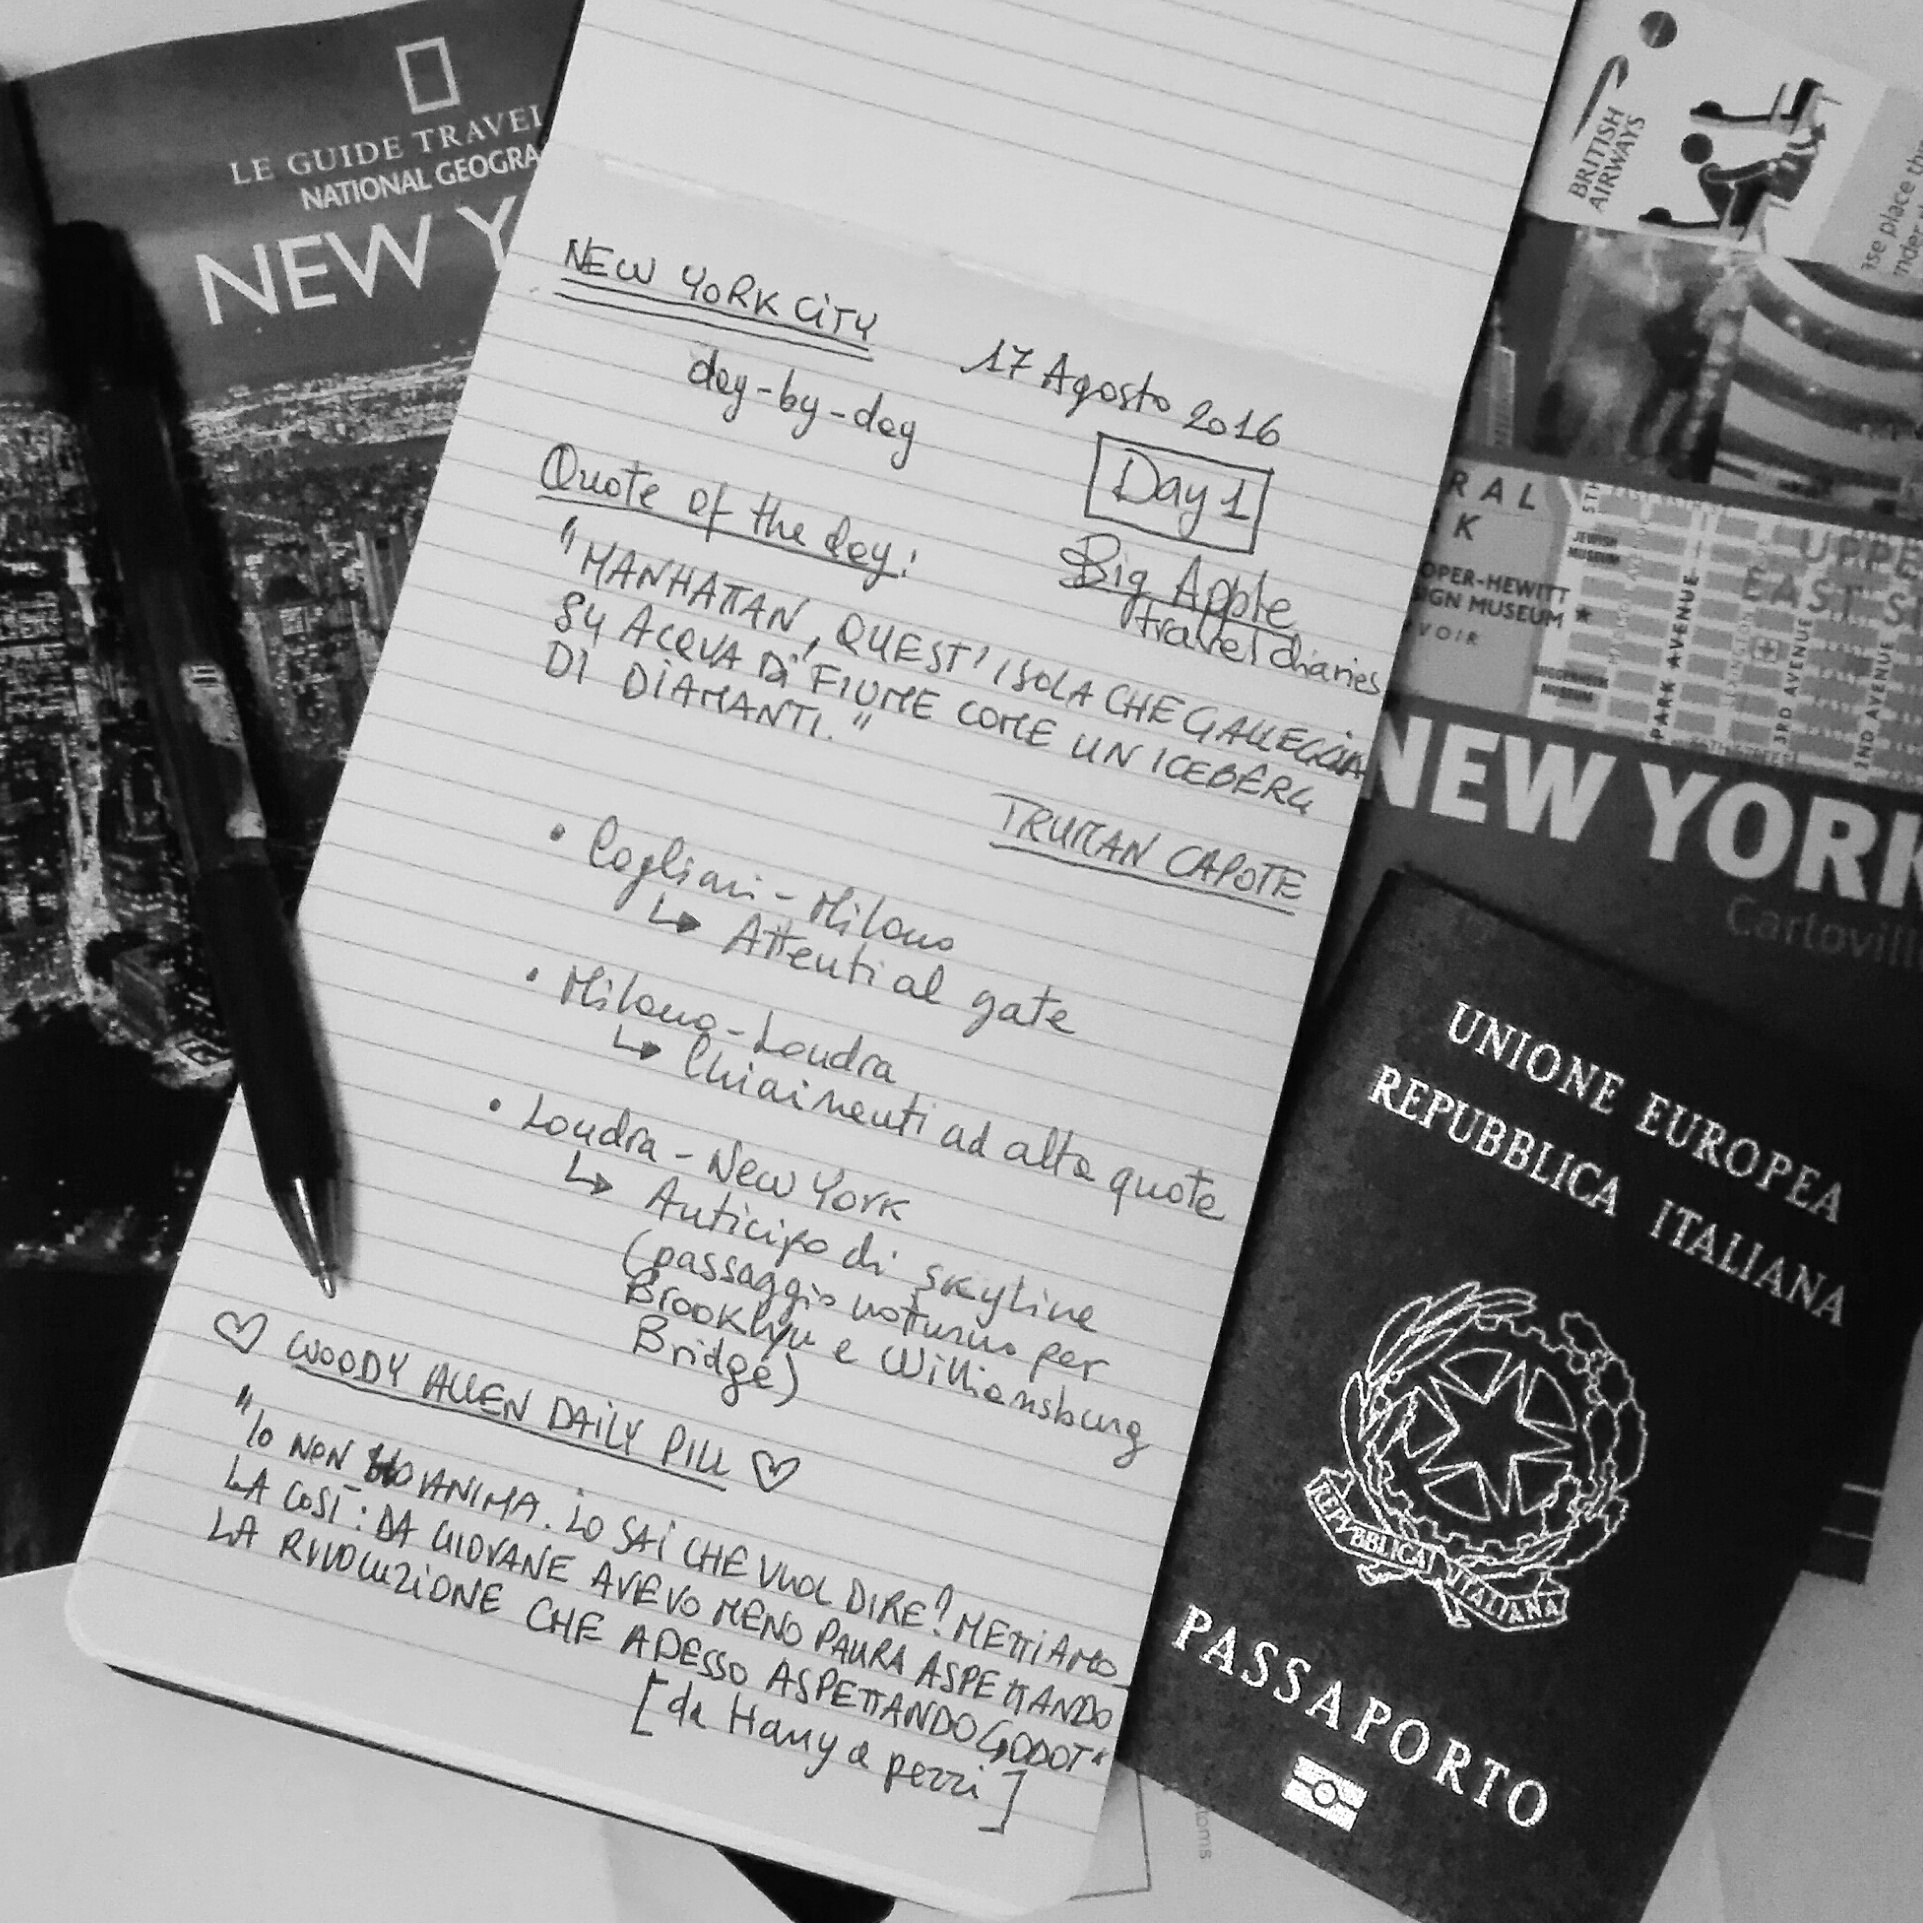 LE GUIDE TRAVEL
NATIONAL GEOGRA
NEW Y
NEW YORK CITY
day-by-day
17 Agosto 2016
Day 1
Big Apple
travel diaries
Quote of the day:
"MANHATTAN, QUEST'ISOLA CHE GALLEGGIA
SU ACQUA DI FIUME COME UN ICEBERG
DI DIAMANTI."
TRUMAN CAPOTE
• Cagliari - Milano
↳ Attenti al gate
• Milano - Londra
↳ Chiarimenti ad alta quota
• Londra - New York
↳ Anticipo di skyline
(passaggio notturno per
Brooklyn e Williamsburg
Bridge)
♡ WOODY ALLEN DAILY PILL ♡
"IO NON HO ANIMA. LO SAI CHE VUOL DIRE? METTIAMO
LA COSÌ: DA GIOVANE AVEVO MENO PAURA ASPETTANDO
LA RIVOLUZIONE CHE ADESSO ASPETTANDO GODOT"
[da Harry a pezzi]
BRITISH
AIRWAYS
RAL
RK
OPER-HEWITT
IGN MUSEUM
VOIR
JEWISH
MUSEUM
GUGGENHEIM
MUSEUM
5TH
PARK AVENUE
3RD AVENUE
2ND AVENUE
UPPE
EAST S
NEW YORK
Cartovill
UNIONE EUROPEA
REPUBBLICA ITALIANA
REPVBBLICA ITALIANA
PASSAPORTO